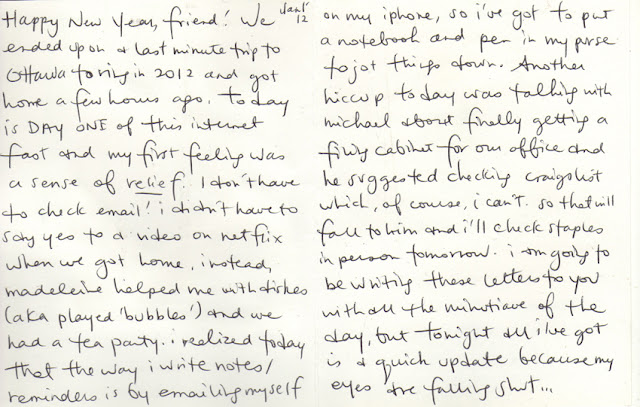 Happy New Year, friend! We Jan 1 '12
ended up on a last minute trip to
Ottawa to ring in 2012 and got
home a few hours ago. Today
is DAY ONE of this internet
fast and my first feeling was
a sense of relief. I don't have
to check email! i didn't have to
say yes to a video on netflix
when we got home, instead,
madeleine helped me with dishes
(aka played 'bubbles') and we
had a tea party. i realized today
that the way i write notes/
reminders is by emailing myself
on my iphone, so i've got to put
a notebook and pen in my purse
to jot things down. Another
hiccup today was talking with
michael about finally getting a
filing cabinet for our office and
he suggested checking craigslist
which, of course, i can't. so that will
fall to him and i'll check staples
in person tomorrow. i am going to
be writing these letters to you
with all the minutiae of the
day, but tonight all i've got
is a quick update because my
eyes are falling shut...